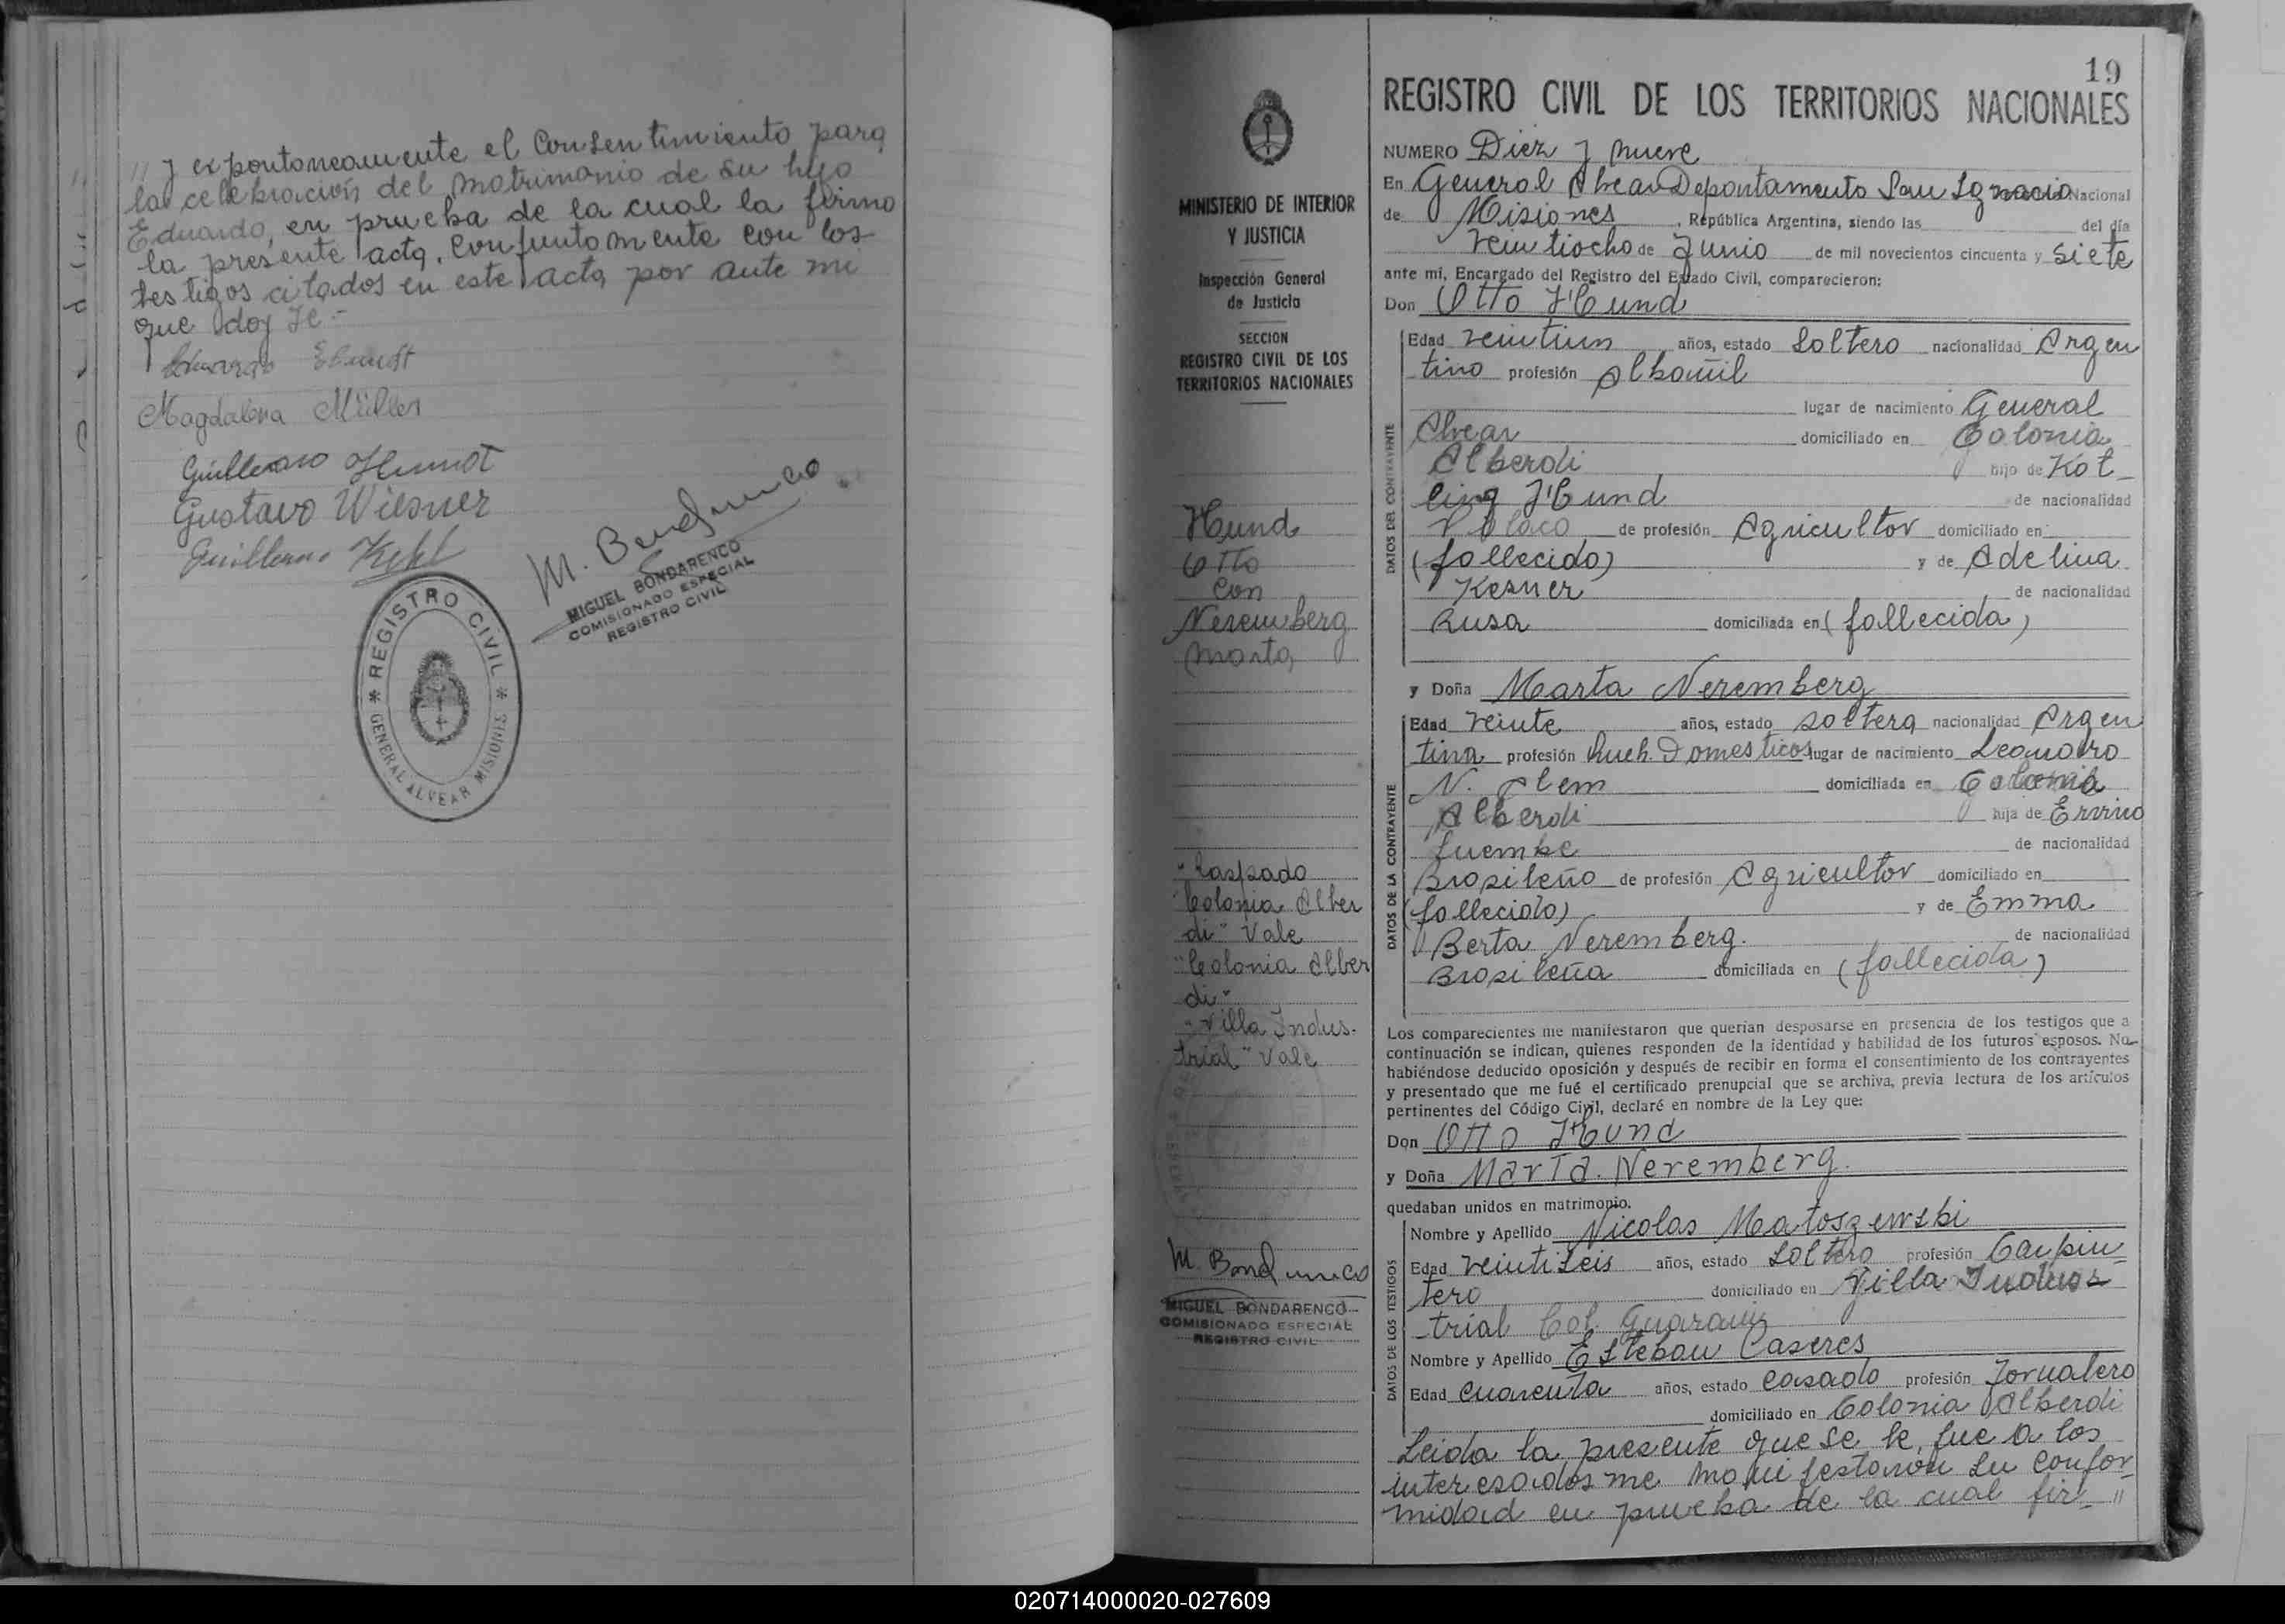 // y expontoneamente el Consentimiento para
la celebración del Motrimonio de su hijo
Eduardo, en prueba de la cual la firmo
la presente acta, Conjuntomente con los
testigos citados en este acta por ante mi
que doy Fe.-
Magdalena Müller
Guillermo Hundt
Gustavo Wiesner
Guillermo
M. Bondarenco
MIGUEL BONDARENCO
COMISIONADO ESPECIAL
REGISTRO CIVIL
* REGISTRO CIVIL *
GENERAL ALVEAR MISIONES
MINISTERIO DE INTERIOR
Y JUSTICIA
Inspección General
de Justicia
SECCION
REGISTRO CIVIL DE LOS
TERRITORIOS NACIONALES
Hund
Otto
Con
Neremberg
Marta
"Raspado
Colonia Alber
di" Vale
"Colonia Alber
di"
"Villa Indus-
trial" Vale
M. Bondarenco
MIGUEL BONDARENCO
COMISIONADO ESPECIAL
REGISTRO CIVIL
19
REGISTRO CIVIL DE LOS TERRITORIOS NACIONALES
NUMERO Diez y nueve
En General Alvear Departamento San Ignacio Nacional
de Misiones, República Argentina, siendo las del día
veintiocho de Junio de mil novecientos cincuenta y siete
ante mí, Encargado del Registro del Estado Civil, comparecieron:
Don Otto Hund
DATOS DEL CONTRAYENTE
Edad veintiun años, estado Soltero nacionalidad Argen
tino profesión Albañil
lugar de nacimiento General
Alvear domiciliado en Colonia
Alberdi hijo de Kot
ling Hund de nacionalidad
Polaco de profesión Agricultor domiciliado en
(fallecido) y de Adelina
Kesner de nacionalidad
Rusa domiciliada en (fallecida)
y Doña Marta Neremberg
DATOS DE LA CONTRAYENTE
Edad veinte años, estado soltera nacionalidad Argen
tina profesión Queh. Domesticos lugar de nacimiento Leandro
N. Alem domiciliada en Colonia
Alberdi hija de Ervino
Luembe de nacionalidad
Brasileño de profesión Agricultor domiciliado en
(fallecido) y de Emma
Berta Neremberg. de nacionalidad
Brasileña domiciliada en (fallecida)
Los comparecientes me manifestaron que querían desposarse en presencia de los testigos que a
continuación se indican, quienes responden de la identidad y habilidad de los futuros esposos. No
habiéndose deducido oposición y después de recibir en forma el consentimiento de los contrayentes
y presentado que me fué el certificado prenupcial que se archiva, previa lectura de los artículos
pertinentes del Código Civil, declaré en nombre de la Ley que:
Don Otto Hund
y Doña Marta. Neremberg.
quedaban unidos en matrimonio.
DATOS DE LOS TESTIGOS
Nombre y Apellido Nicolas Matoszewski
Edad veintiseis años, estado Soltero profesión Carpin
tero domiciliado en Villa Indus
trial Col. Guarani
Nombre y Apellido Esteban Caseres
Edad cuarenta años, estado casado profesión Jornalero
domiciliado en Colonia Alberdi
Leida la presente que se le fue a los
interesados me manifestaron su confor
midad en prueba de la cual fir- "
020714000020-027609